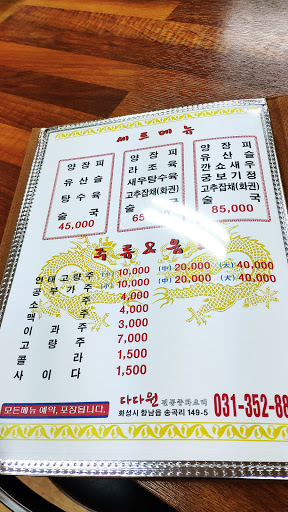 세트메뉴
양장피
유산슬
탕수육
술국
45,000
양장피
라조육
새우탕수육
고추잡채(화권)
술국
65
양장피
유산슬
깐쇼새우
궁보기정
고추잡채(화권)
술국
85,000
주류&음
연태고량주 (小) 10,000 (中) 20,000 (大) 40,000
공부가주 (小) 10,000 (中) 20,000 (大) 40,000
소주 4,000
맥주 4,000
이과주 3,000
고량주 7,000
콜라 1,500
사이다 1,500
모든메뉴 예약, 포장됩니다.
다다원 전통중화요리
화성시 향남읍 송곡리 149-5
031-352-88